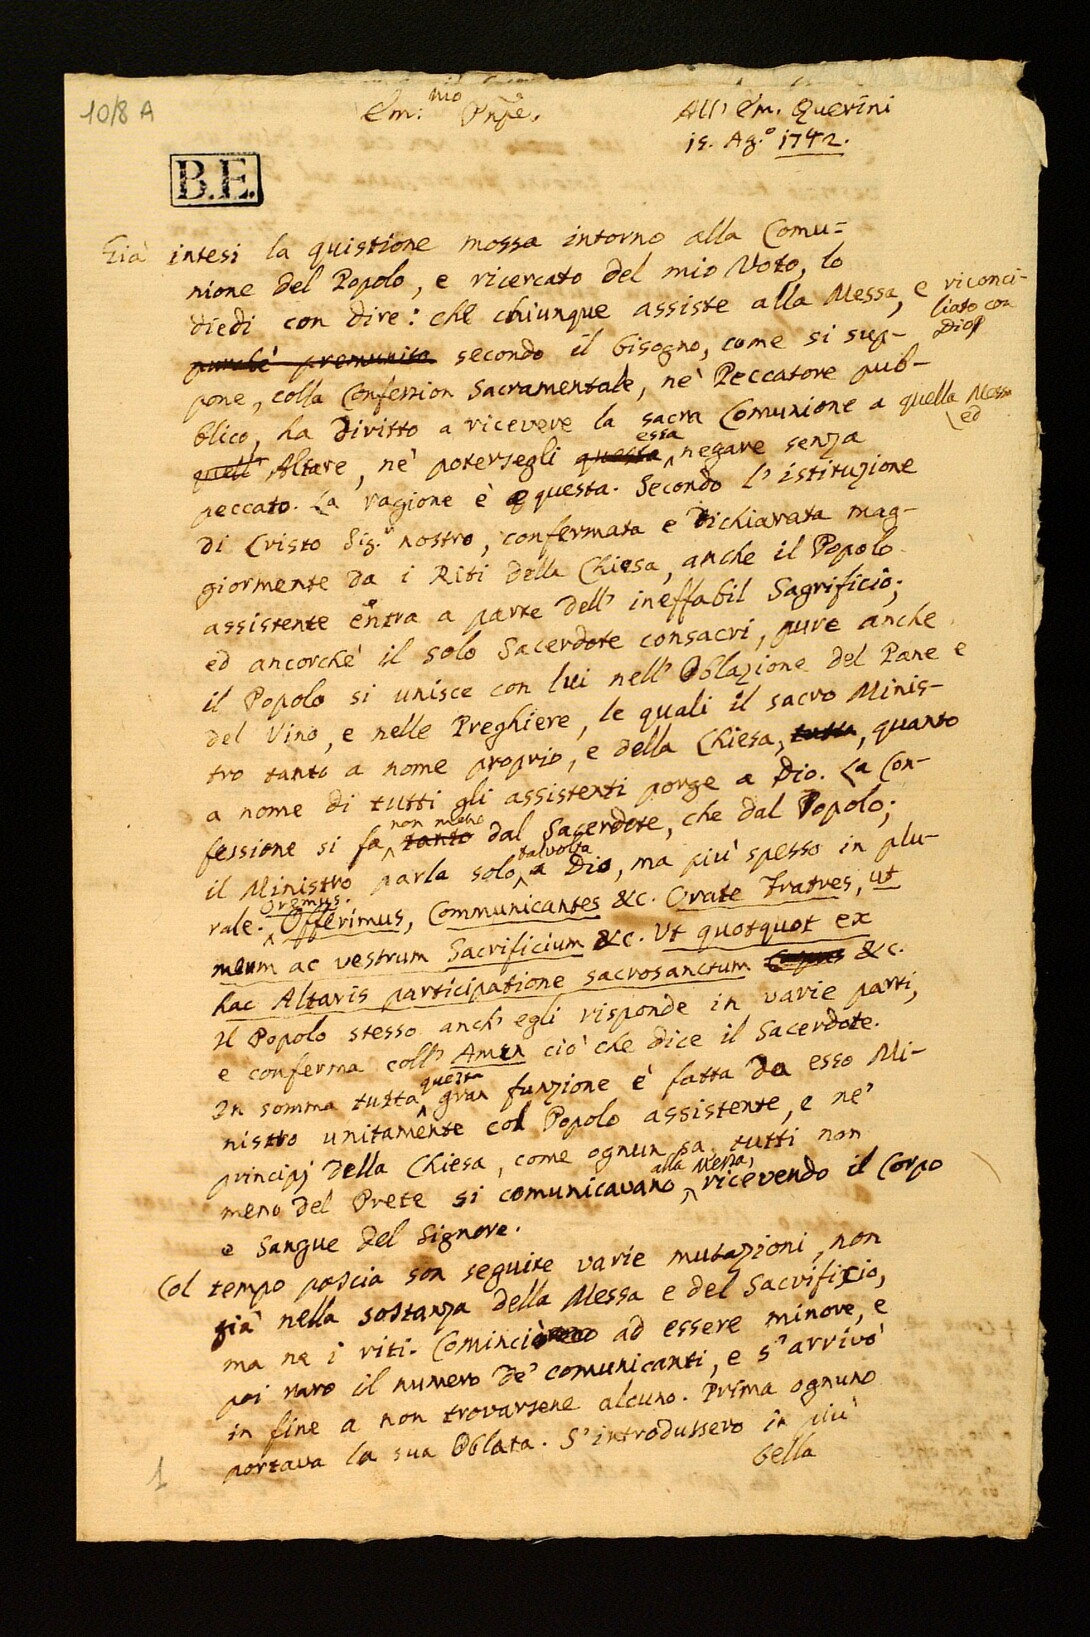 10/8 A
Em:mo Pnpe.
All' Em. Querini
15. Ag.o 1742.
B.E.
Già intesi la quistione mossa intorno alla Comu=
nione del Popolo, e ricercato del mio Voto, lo
diedi con dire: che chiunque assiste alla Messa, e riconci-
liato con
Dio
purchè premunito secondo il bisogno, come si sup-
pone, colla Confession Sacramentale, nè Peccatore pub-
blico, ha diritto a ricevere la sacra Comunione a quella Messa
ed
quell' Altare, nè potersegli questa essa negare senza
peccato. La ragione è questa. Secondo l'istituzione
di Cristo Sig.r nostro, confermata e dichiarata mag-
giormente da i Riti della Chiesa, anche il Popolo
assistente entra a parte dell' ineffabil Sagrificio;
ed ancorchè il solo Sacerdote consacri, pure anche
il Popolo si unisce con lui nell' Oblazione del Pane e
del Vino, e nelle Preghiere, le quali il sacro Minis-
tro tanto a nome proprio, e della Chiesa, tutta, quanto
a nome di tutti gli assistenti porge a Dio. La Con-
fessione si fa tanto non meno dal Sacerdote, che dal Popolo;
il Ministro parla solo talvolta a Dio, ma più spesso in plu-
rale. Oremus. Offerimus, Communicantes &c. Orate Fratres, ut
meum ac vestrum Sacrificium &c. Ut quotquot ex
hac Altaris participatione sacrosanctum Corpus &c.
Il Popolo stesso anch' egli risponde in varie parti,
e conferma coll' Amen ciò che dice il Sacerdote.
In somma tutta questa gran funzione è fatta da esso Mi-
nistro unitamente col Popolo assistente, e ne'
principj della Chiesa, come ognun sa, tutti non
meno del Prete si comunicavano alla Messa, ricevendo il Corpo
e Sangue del Signore.
Col tempo poscia son seguite varie mutazioni, non
già nella sostanza della Messa e del Sacrifizio,
ma ne i riti. Cominciò ad essere minore, e
poi raro il numero de' comunicanti, e s'arrivò
in fine a non trovarsene alcuno. Prima ognuno
portava la sua Oblata. S'introdussero in più
bella
1